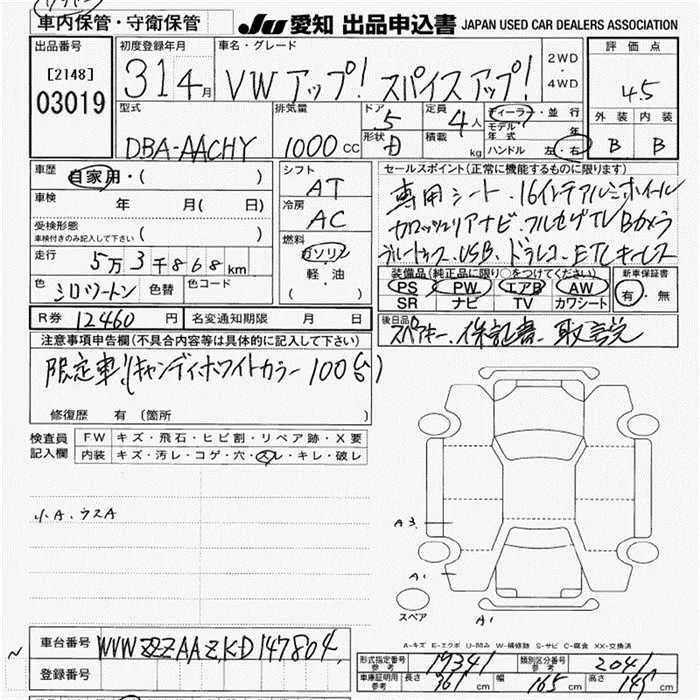 車内保管・守衛保管
JU 愛知 出品申込書 JAPAN USED CAR DEALERS ASSOCIATION
出品番号
[2148]
03019
初度登録年月
31 4月
車名・グレード
VW アップ! スパイスアップ!
2WD
・
4WD
評価点
4.5
外装 内装
B B
型式
DBA-AACHY
排気量
1000 CC
ドア
5
形状
定員
4人
積載
kg
ディーラー・並行
モデル年式 年
ハンドル 左・右
車歴
自家用・( )
車検
年 月( 日)
受検形態
車検付きのみ記入して下さい ( )
走行
5万3千868km
色
シロツートン
色替
色コード
シフト
AT
冷房
AC
燃料
ガソリン
・
軽・油
( )
セールスポイント(正常に機能するものに限ります)
専用シート、16インチアルミホイール
カロッツェリアナビ・フルセグTV Bカメラ
ブルートゥース、USB、ドラレコ、ETC キーレス
装備品(純正品に限り○をつけてください)
PS PW エアB AW
SR ナビ TV カワシート
新車保証書
有・無
R券 12460 円
名変通知期限 月 日
後日品
スペアキー、保証書、取説
注意事項申告欄(不具合内容等は具体的に記入して下さい)
限定車!(キャンディホワイトカラー 100台)
修復歴 有(箇所 )
検査員
記入欄
FW キズ・飛石・ヒビ割・リペア跡・X要
内装 キズ・汚レ・コゲ・穴・スレ・キレ・破レ
小A、ウスA
A3
A1
スペア
A1
A-キズ E-エクボ U-凹み W-補修跡 S-サビ C-腐食 XX-交換済
車台番号
WVWZZZAAZKD147804
登録番号
形式指定番号
参考
17341
類別区分番号
参考
2041
車庫証明用
参考
長さ 361cm 幅 165cm 高さ 145cm